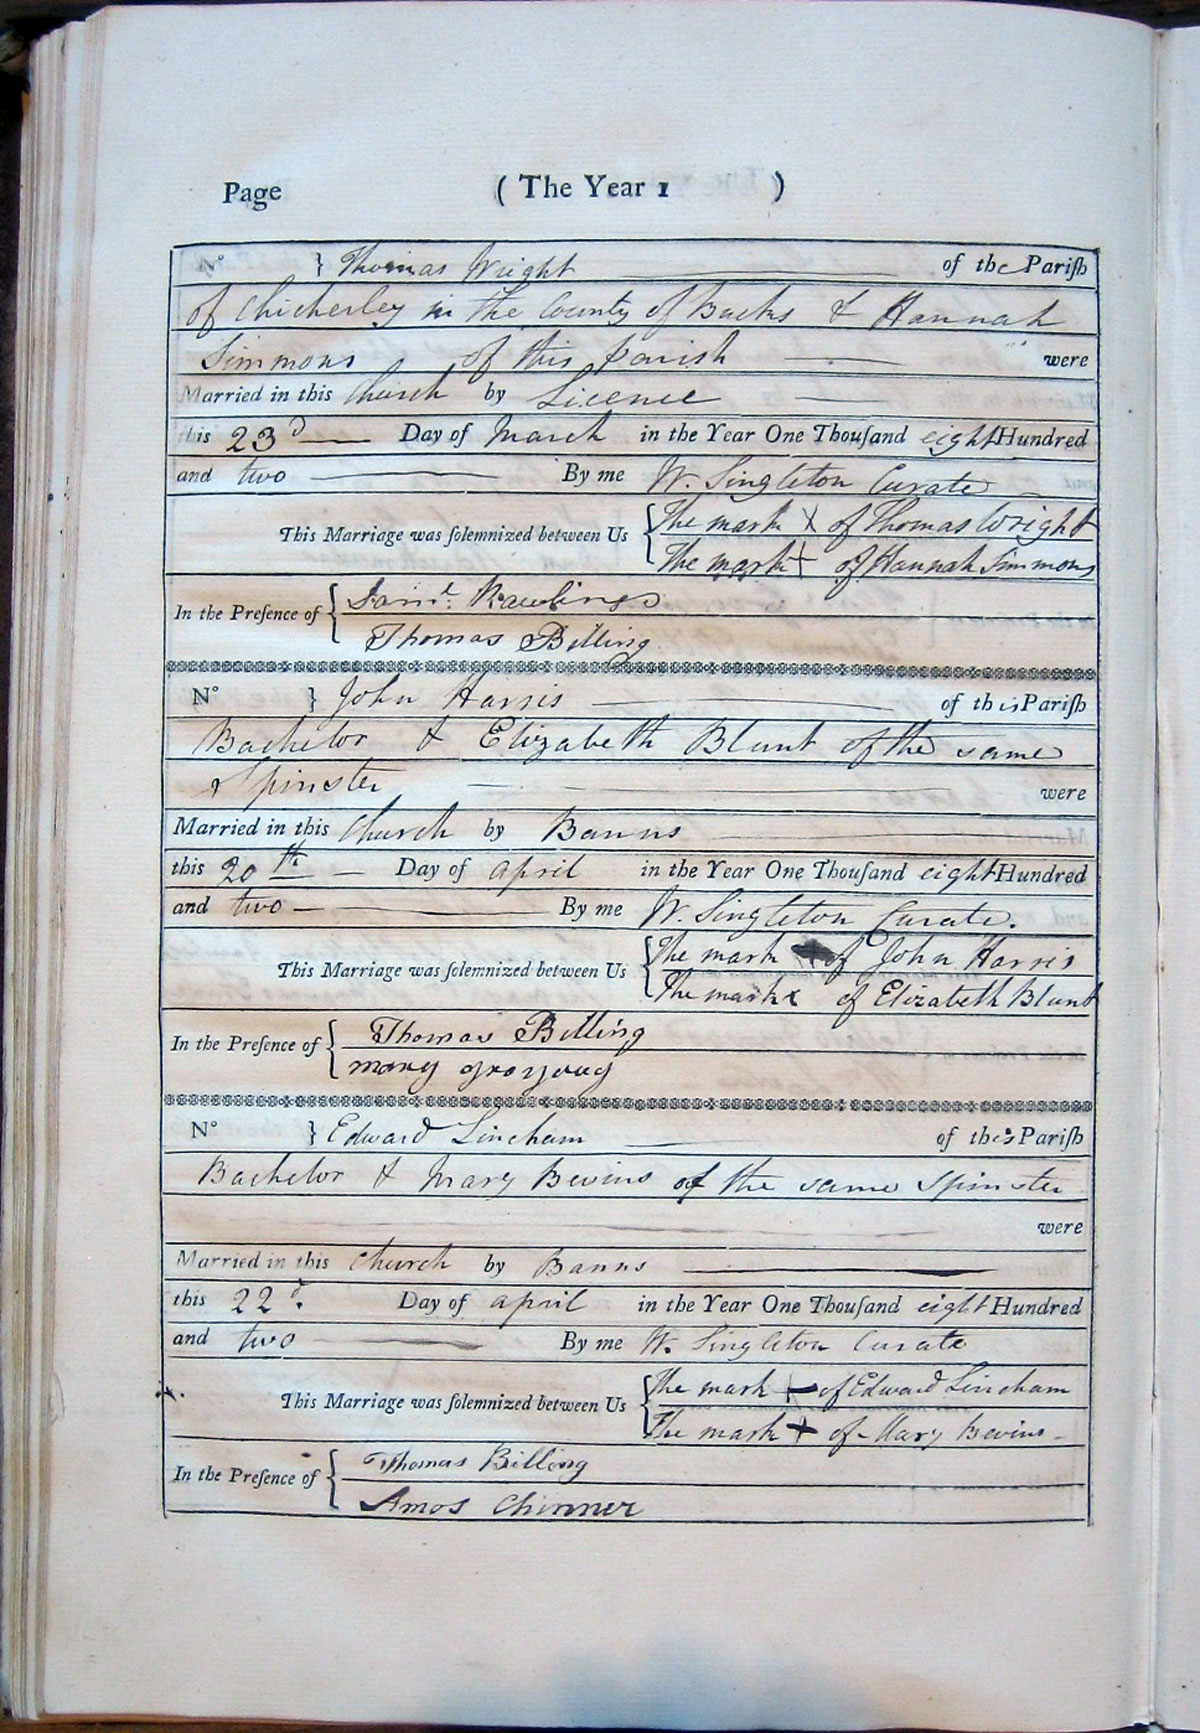 Page ( The Year 1 )
N° } Thomas Wright of the Pariſh
of Chicherley in the County of Bucks & Hannah
Simmons of this parish were
Married in this Church by Licence
this 23d Day of March in the Year One Thouſand eight Hundred
and two By me W. Singleton Curate
This Marriage was ſolemnized between Us { The mark X of Thomas Wright
The mark + of Hannah Simmons
In the Preſence of { Saml. Rawlings
Thomas Billing
N° } John Harris of this Pariſh
Bachelor & Elizabeth Blunt of the same
Spinster were
Married in this Church by Banns
this 20th Day of april in the Year One Thouſand eight Hundred
and two By me W. Singleton Curate.
This Marriage was ſolemnized between Us { The mark of John Harris
The mark x of Elizabeth Blunt
In the Preſence of { Thomas Billing
mary
N° } Edward Lincham of this Pariſh
Bachelor & Mary Bevins of the same Spinster
were
Married in this Church by Banns
this 22d. Day of april in the Year One Thouſand eight Hundred
and two By me W. Singleton Curate
This Marriage was ſolemnized between Us { The mark + of Edward Lincham
The mark + of Mary Bevins
In the Preſence of { Thomas Billing
Amos Chinner